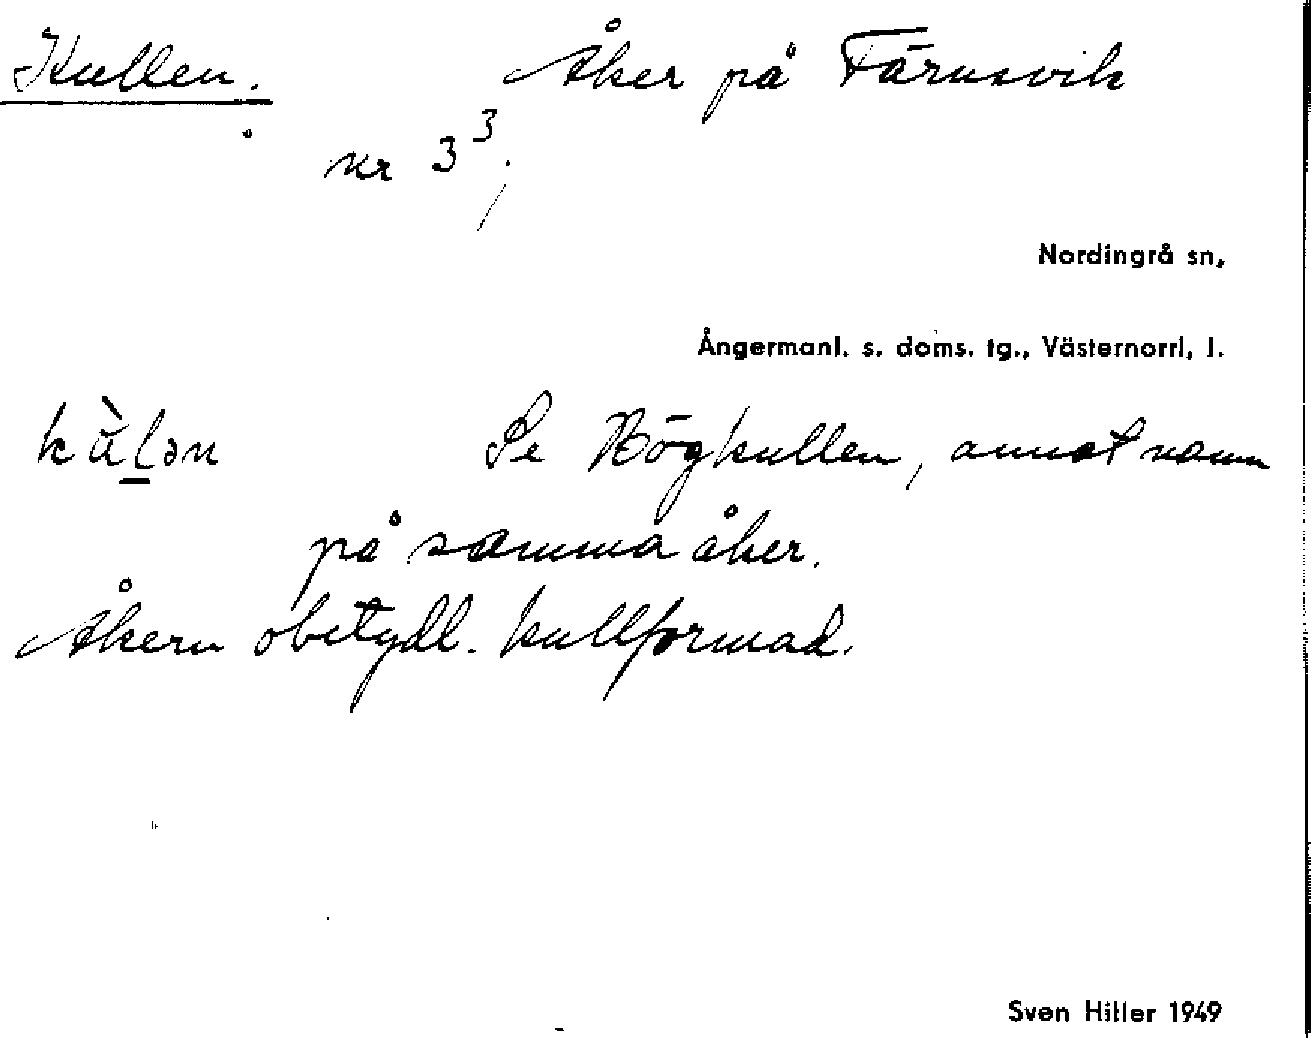 Kullen. Åker på Färusvik
nr 3³;
Nordingrå sn,
Ångermanl. s. doms. tg., Västernorrl, l.
kùlən Se Högkullen, annat namn
på samma åker.
Åkern obetydl. kullformad.
Sven Hiller 1949